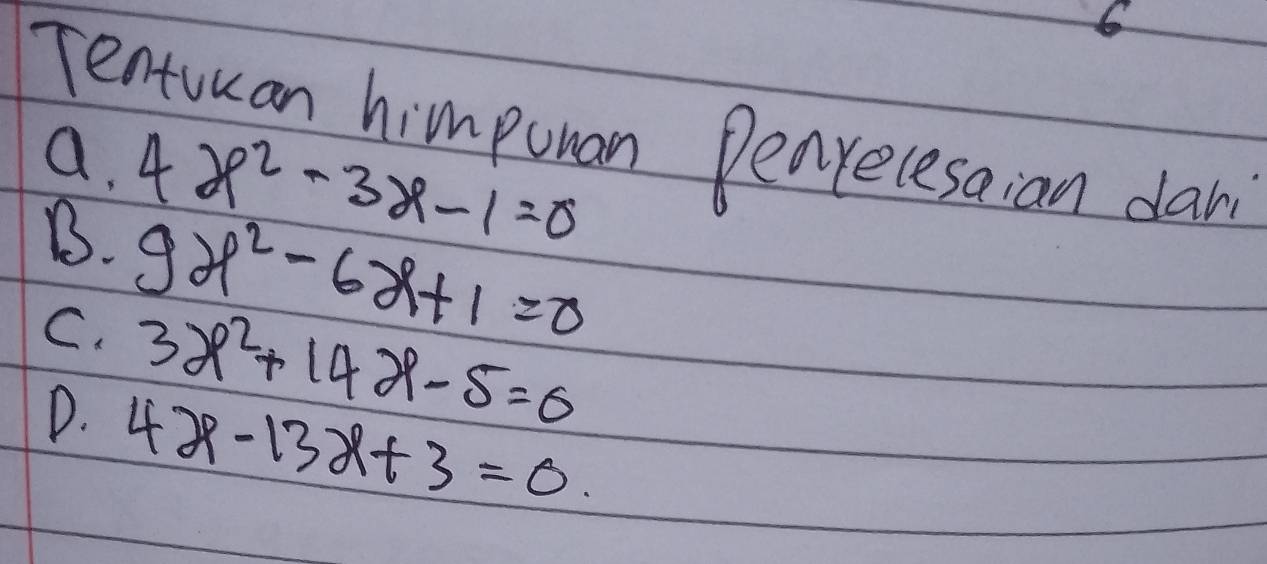 6
Tentukan himpunan Penyelesaian dari
a. 4x² - 3x - 1 = 0
B. 9x² - 6x + 1 = 0
C. 3x² + 14x - 5 = 0
D. 4x - 13x + 3 = 0.